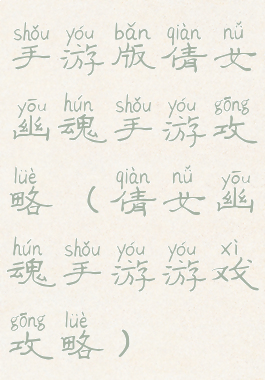 shǒu yóu bǎn qiàn nǚ
手游版倩女
yōu hún shǒu yóu gōng
幽魂手游攻
lüè qiàn nǚ yōu
略（倩女幽
hún shǒu yóu yóu xì
魂手游游戏
gōng lüè
攻略）